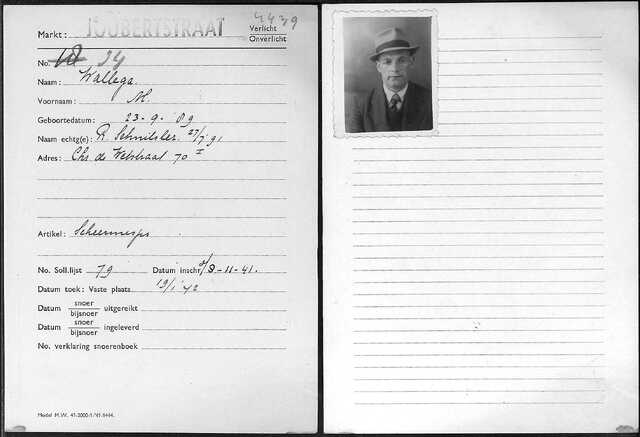 4439
Markt: JOUBERTSTRAAT Verlicht
Onverlicht
No. 18 34
Naam: Wallega.
Voornaam: M.
Geboortedatum: 23-9-89
Naam echtg(e): R. Schnitsler 27/7 '91
Adres: Chr de Wetstraat 70 I
Artikel: Scheermesjes
No. Soll.lijst 79 Datum inschr. 8-11-41.
Datum toek: Vaste plaats 19/1 42
Datum snoer uitgereikt
bijsnoer
Datum snoer ingeleverd
bijsnoer
No. verklaring snoerenboek
Model M.W. 41-2000-1/'41-8444.